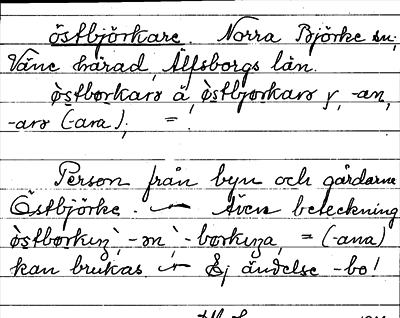 östbjörkare. Norra Björke sn;
Väne härad, Älfsborgs län.
östborkarə å, östbjorkarə y, -an,
-arə (-ara), =.
Person från byn och gårdarna
Östbjörke. — Även beteckning
östborkiŋ, -ən, -borkiŋa, = (-ana)
kan brukas. — Ej ändelse -bo!